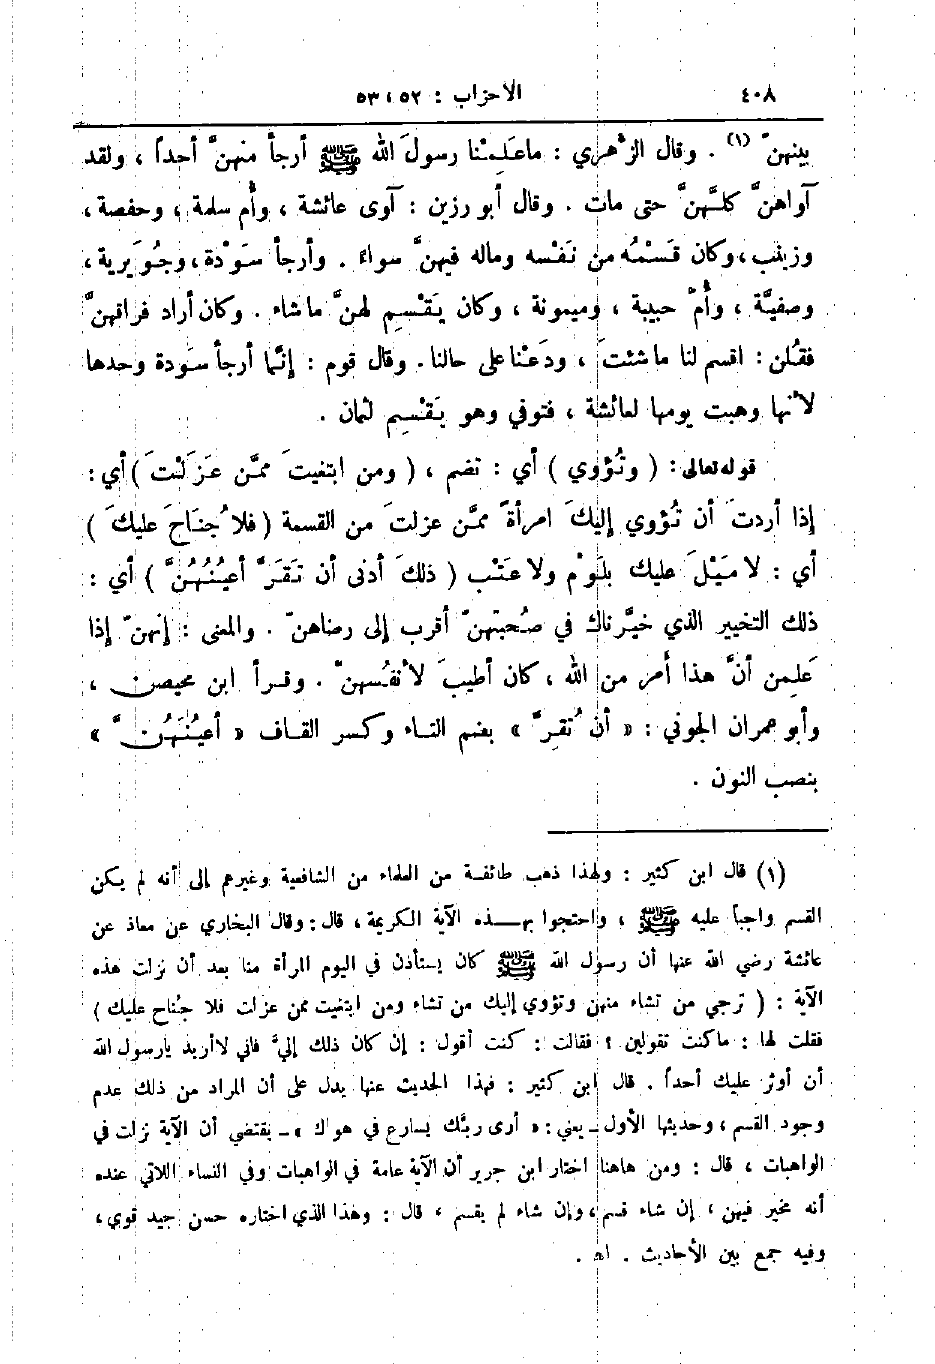 ٤٠٨
الأحزاب : ٥٢ ، ٥٣
بينهنّ (١) . وقال الزُّهري : ما عَلِمْنا رسولَ الله ﷺ أرجأ منهنَّ أحداً ، ولقد
آواهنَّ كلَّهنَّ حتى مات . وقال أبو رزين : آوى عائشة ، وأُم سلمة ، وحفصة ،
وزينب ، وكان قَسْمُه من نَفْسه وماله فيهنَّ سواءَ . وأرجأ سَوْدة ، وجُوَيرية ،
وصفيَّة ، وأُمّ حبيبة ، وميمونة ، وكان يَقْسِم لهنَّ ما شاء . وكان أراد فراقهنَّ
فقُلن : اقسم لنا ما شئتَ ، ودَعْنا على حالنا . وقال قوم : إنَّما أرجأ سَودة وحدها
لأنها وهبت يومها لعائشة ، فتوفي وهو يَقْسِم لثمان .
قوله تعالى : ( وتُؤوي ) أي : تضم ، ( ومن ابتغيتَ ممَّن عَزَلْتَ ) أي :
إذا أردتَ أن تُؤوي إليكَ امرأةً ممَّن عزلتَ من القسمة ( فلا جُنَاحَ عليكَ )
أي : لا مَيْلَ عليك بلَوْم ولا عَتْب ( ذلكَ أدنى أن تَقَرَّ أعيُنُهُنَّ ) أي :
ذلك التخيير الذي خيَّرناك في صُحبتهنّ أقرب إلى رضاهنّ . والمعنى : إنهنّ إذا
عَلِمن أنَّ هذا أمر من الله ، كان أطيبَ لأنفُسهنّ . وقرأ ابن محيصن ،
وأبو عمران الجوني : « أن تُقِرَّ » بضم التاء وكسر القاف « أعيُنَهُنَّ »
بنصب النون .
(١) قال ابن كثير : ولهذا ذهب طائفة من العلماء من الشافعية وغيرهم إلى أنه لم يكن
القسم واجباً عليه ﷺ ، واحتجوا بهذه الآية الكريمة ، قال : وقال البخاري عن معاذ عن
عائشة رضي الله عنها أن رسول الله ﷺ كان يستأذن في اليوم المرأة منا بعد أن نزلت هذه
الآية : ( ترجي من تشاء منهن وتؤوي إليك من تشاء ومن ابتغيت ممن عزلت فلا جُناح عليك )
فقلت لها : ما كنت تقولين ؟ فقالت : كنت أقول : إن كان ذلك إليَّ فاني لا أريد يا رسول الله
أن أوثر عليك أحداً . قال ابن كثير : فهذا الحديث عنها يدل على أن المراد من ذلك عدم
وجود القسم ، وحديثها الأول ـ يعني : « أرى ربَّك يسارع في هواك » ـ يقتضي أن الآية نزلت في
الواهبات ، قال : ومن هاهنا اختار ابن جرير أن الآية عامة في الواهبات وفي النساء اللاتي عنده
أنه مخير فيهن ، إن شاء قسم ، وإن شاء لم يقسم ، قال : وهذا الذي اختاره حسن جيد قوي ،
وفيه جمع بين الأحاديث . اهـ .